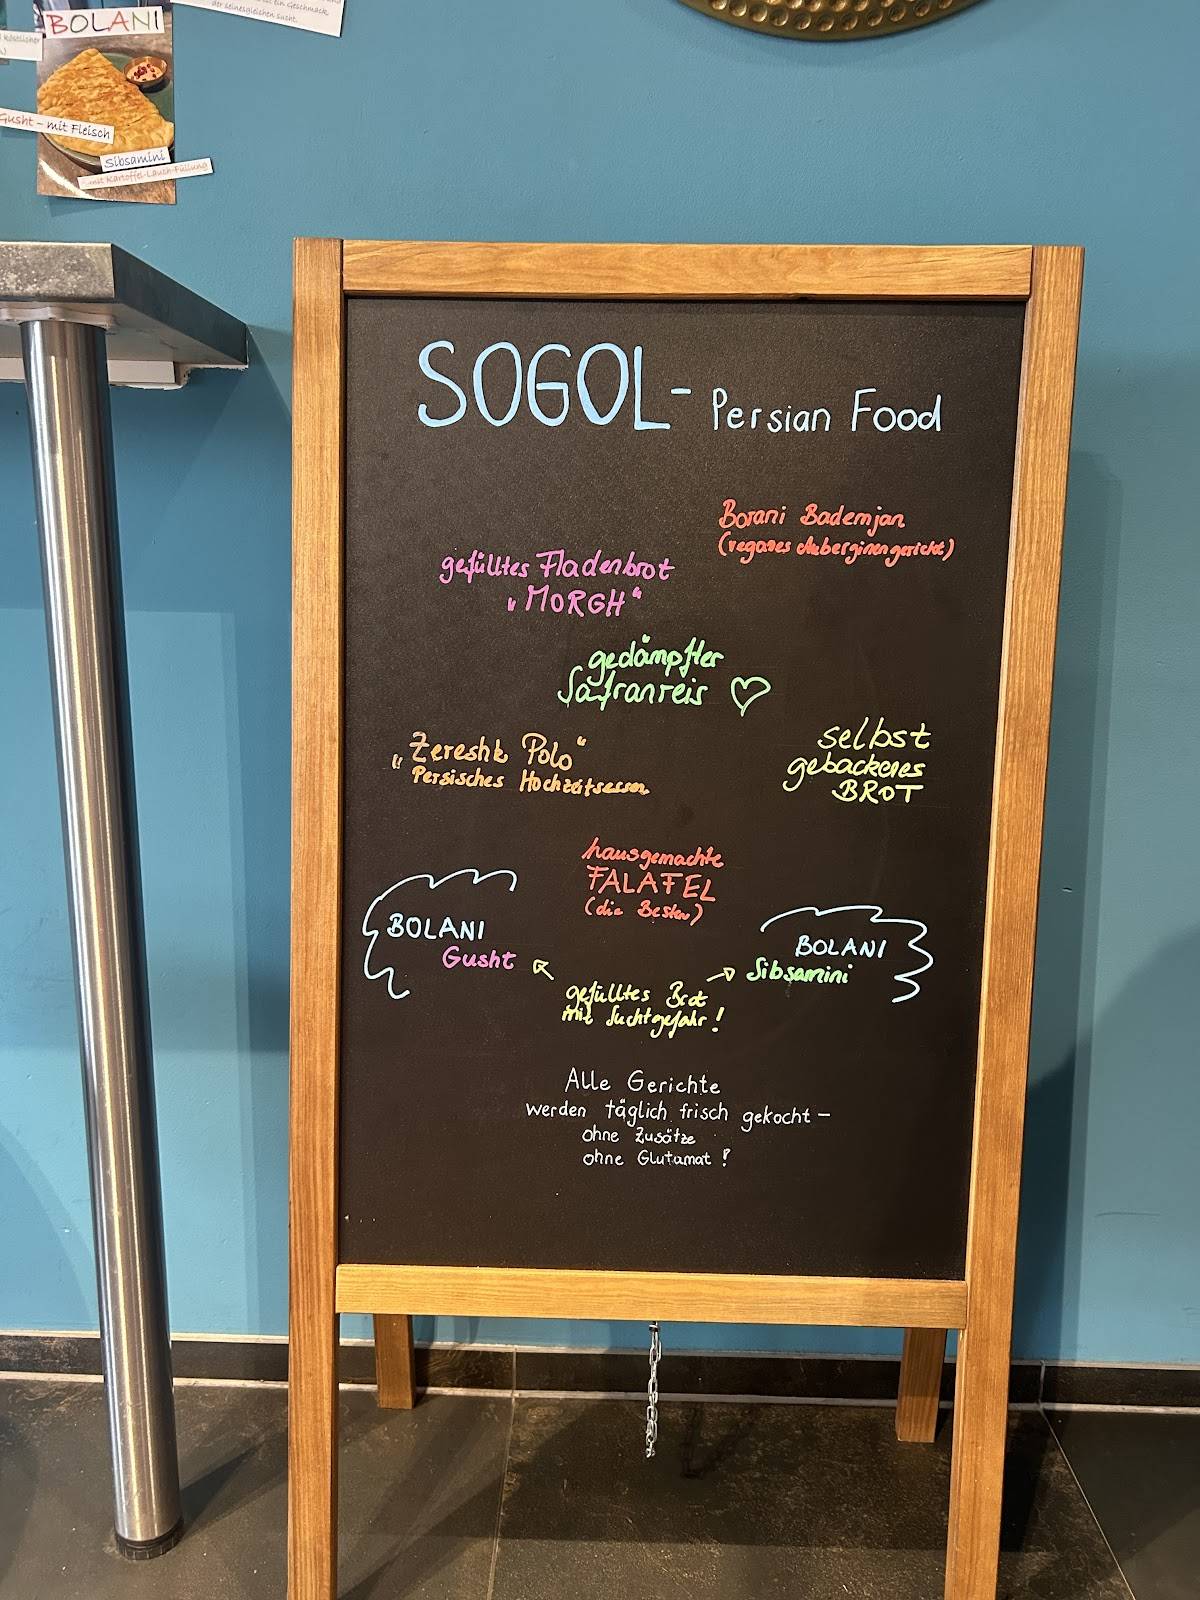 BOLANI
Gusht – mit Fleisch
Sibsamini
mit Kartoffel-Lauch-Füllung
ein Geschmack
der seinesgleichen sucht.
SOGOL - Persian Food
Borani Bademjan
(veganes Auberginengericht)
gefülltes Fladenbrot
„MORGH“
gedämpfter
Safranreis ♡
„Zereshk Polo“
Persisches Hochzeitsessen
selbst
gebackenes
BROT
hausgemachte
FALAFEL
(die Besten)
BOLANI
Gusht
BOLANI
Sibsamini
gefülltes Brot
mit Suchtgefahr!
Alle Gerichte
werden täglich frisch gekocht –
ohne Zusätze
ohne Glutamat!